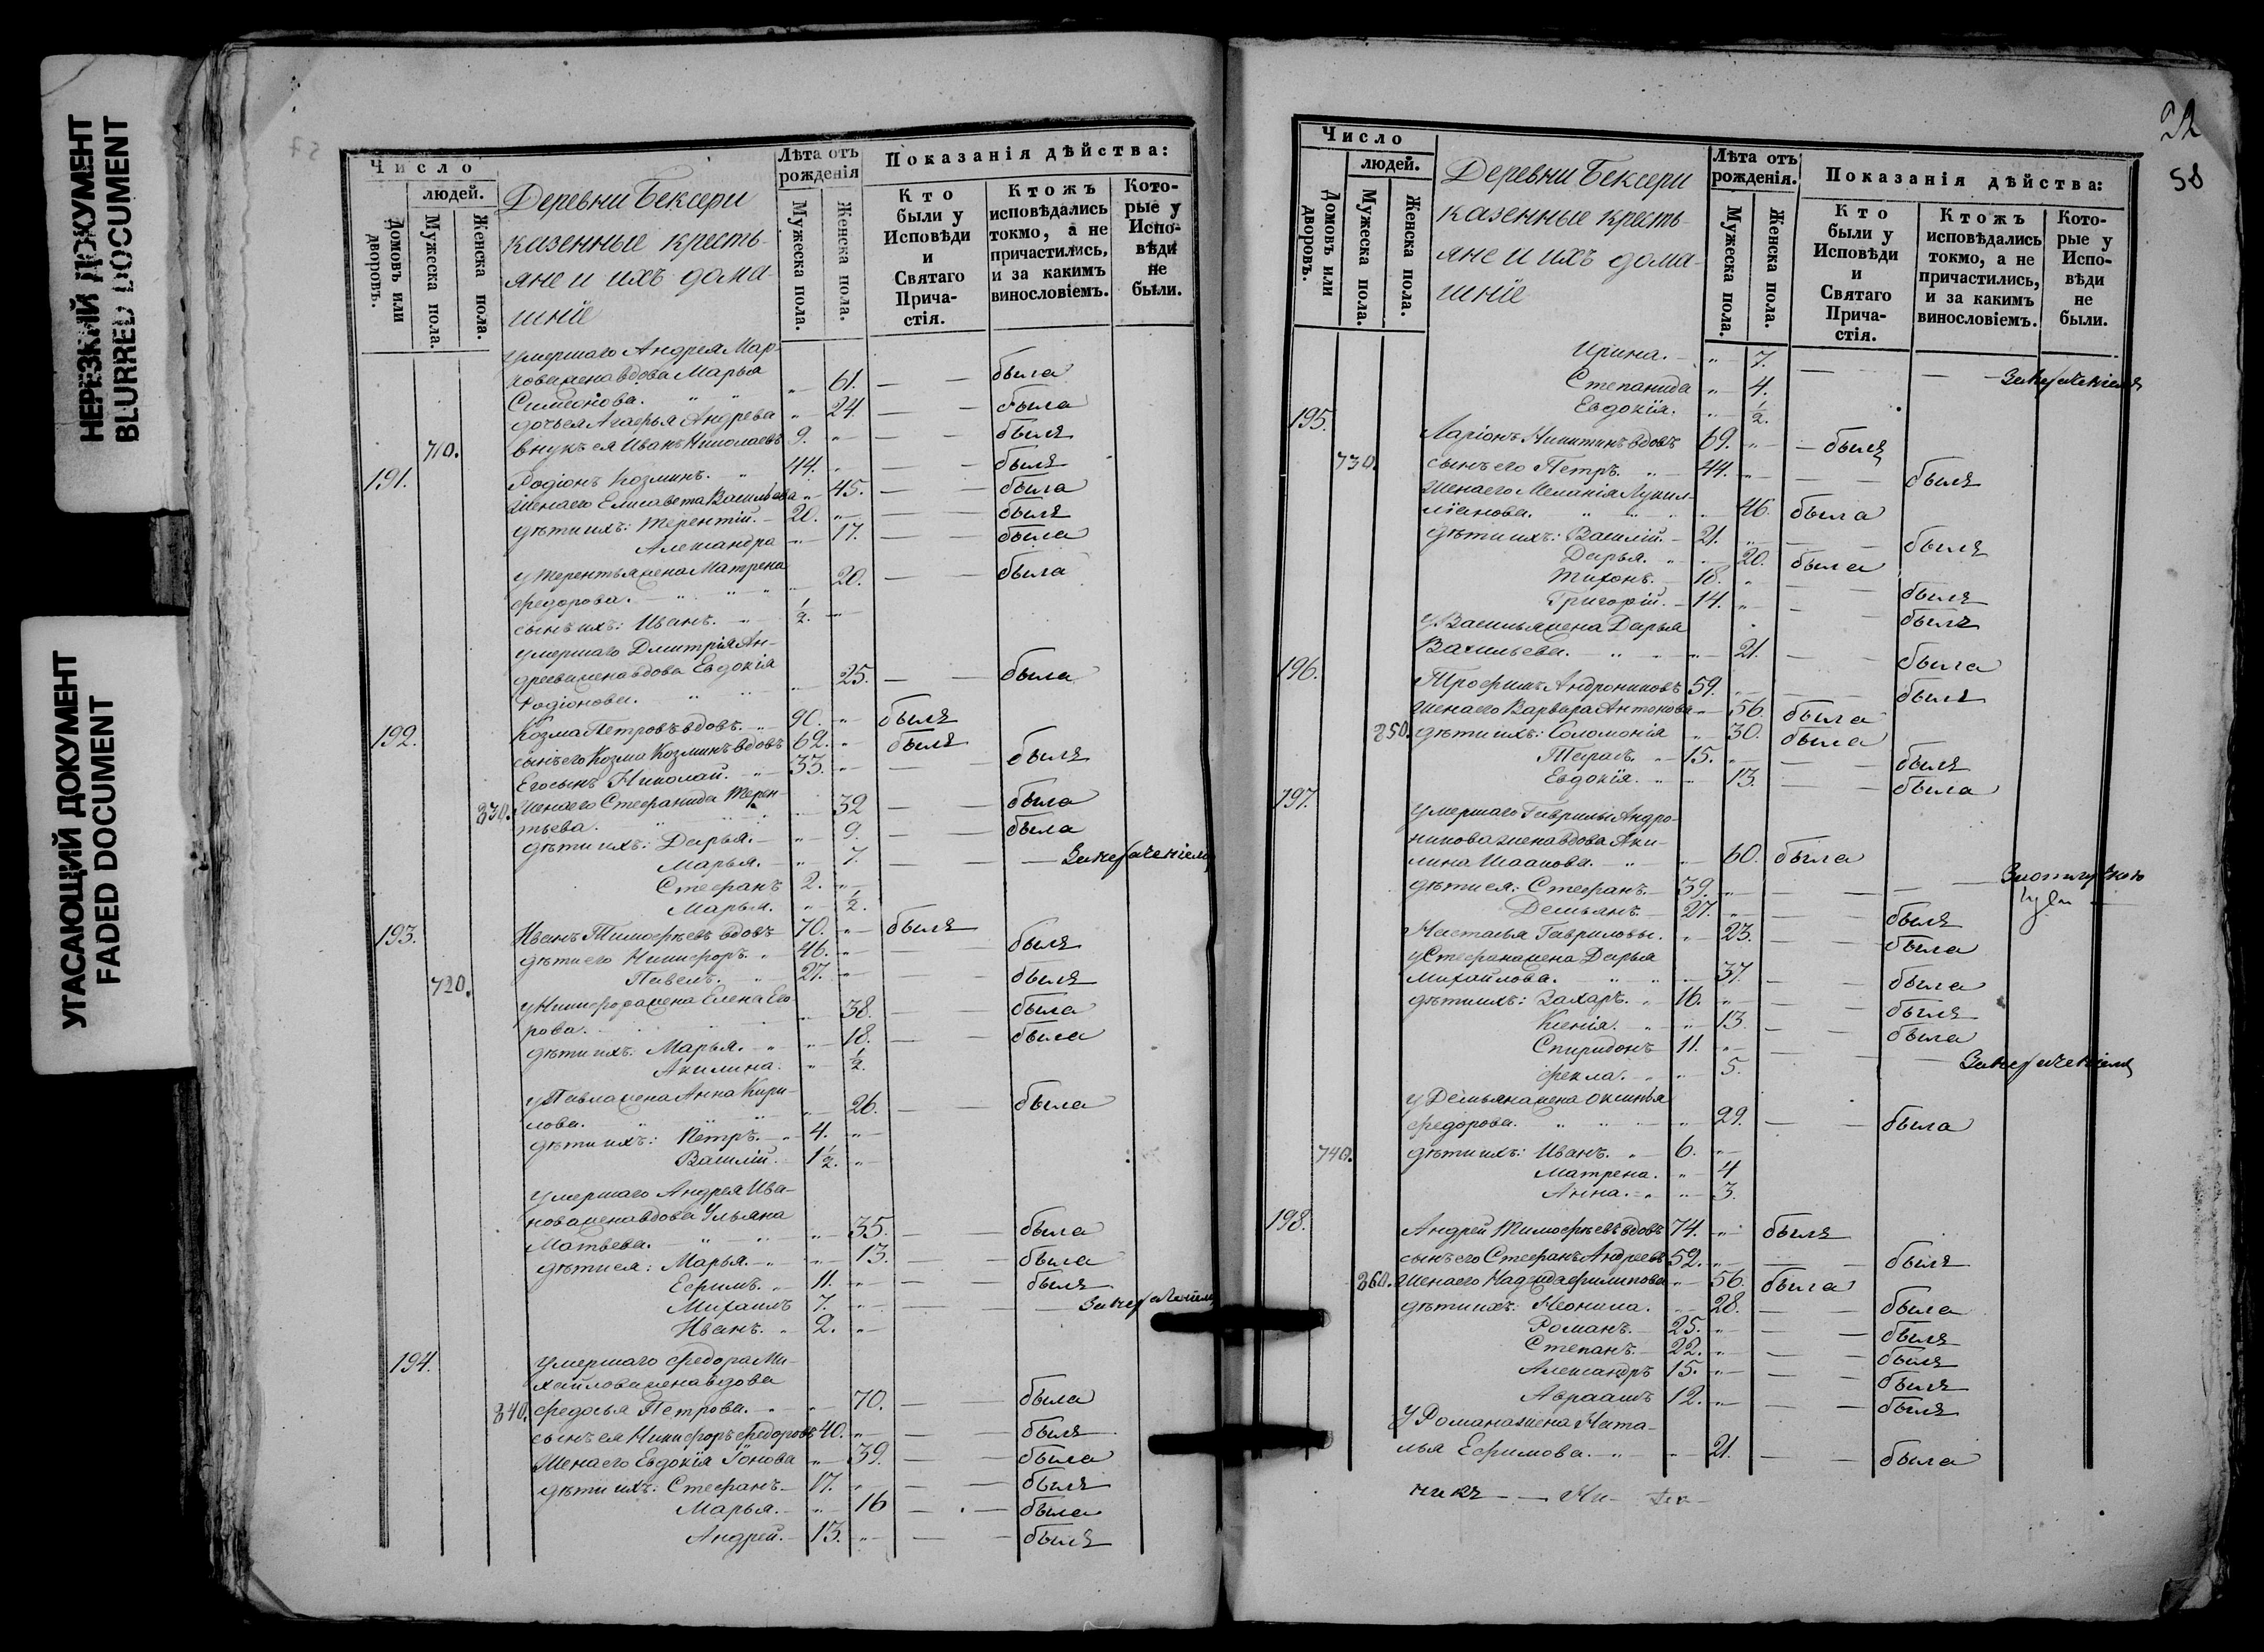 НЕРЕЗКИЙ ДОКУМЕНТ
BLURRED DOCUMENT
УГАСАЮЩИЙ ДОКУМЕНТ
FADED DOCUMENT
Число
людей.
Домовъ или дворовъ.
Мужеска пола.
Женска пола.
Деревни Бексери
казенные кресть-
яне и ихъ дома-
шнїе
Лѣта отъ рожденія
Мужеска пола.
Женска пола.
Показанія дѣйства:
Кто были у Исповѣди и Святаго Прича-стія.
Ктожъ исповѣдались токмо, а не причастились, и за какимъ винословіемъ.
Кото-рые у Испо-вѣди не были.
Умершаго Андрея Мар-
кова жена вдова Марья
Симеонова. „ „ „ 61. — — была
дочь ея Агафья Андреева „ 24. — — была
710. внукъ ея Иванъ Николаевъ 9. „ — — былъ
191. Родіонъ Козминъ. „ 44. „ — — былъ
Жена его Елисавета Васильева „ 45. — — была
дѣти ихъ: Терентій. 20. „ — — былъ
Александра „ 17. — — была
у Терентья жена Матрена
Федорова. „ „ „ „ 20. — — была
сынъ ихъ: Иванъ. ½. „
умершаго Дмитрія Ан-
дреева жена вдова Евдокія
Родіонова. „ „ „ 25. — — была
192. Козма Петровъ вдовъ. „ 90. „ былъ
сынъ его Козма Козминъ вдовъ 62. „ былъ
Его сынъ Николай. „ 33. „ — — былъ
830. Жена его Стефанида Терен-
тьева. „ „ „ „ 32 — — была
дѣти ихъ: Дарья. „ 9. — — была
Марья. „ 7. — —
Стефанъ 2. „
Марья. „ ½.
193. Иванъ Тимофѣевъ вдовъ 70. „ былъ
дѣти его Никифоръ. „ 46. „ — былъ
720. Павелъ. „ 27. „ — былъ
у Никифора жена Елена Его-
рова. „ „ „ 38. — — была
дѣти ихъ: Марья. „ „ 18. — — была
Акилина. „ ½.
у Павла жена Анна Кири-
лова. „ „ „ 26. — — была
дѣти ихъ: Петръ. „ 4. „
Василій. 1½. „
умершаго Андрея Ива-
нова жена вдова Ульяна
Матвеева. „ „ „ 35. — — была
дѣти ея: Марья. „ „ 13. — — была
Ефимъ. „ 11. „ — — былъ
Михаилъ 7. „ — —
Иванъ. „ 2. „
194. Умершаго Федора Ми-
хайлова жена вдова
840. Федосья Петрова. „ „ 70. — — была
сынъ ея Никифоръ Федоровъ 40. „ — — былъ
Жена его Евдокїя Іонова „ 39. — — была
дѣти ихъ: Стефанъ 17. „ — — былъ
Марья. „ 16 — — была
Андрей. 13. „ — — былъ
22
58
Число
людей.
Домовъ или дворовъ.
Мужеска пола.
Женска пола.
Деревни Бексери
казенные кресть-
яне и ихъ дома-
шнїе
Лѣта отъ рожденія.
Мужеска пола.
Женска пола.
Показанія дѣйства:
Кто были у Исповѣди и Святаго Прича-стія.
Ктожъ исповѣдались токмо, а не причастились, и за какимъ винословіемъ.
Кото-рые у Испо-вѣди не были.
Ирина. „ 7. — —
Степанида „ 4.
Евдокїя. „ ½.
195. Ларіонъ Никитинъ вдовъ 69. „ былъ
730. сынъ его Петръ. „ 44. „ — — былъ
Жена его Меланія
„ „ „ 46. была
дѣти ихъ: Василій. 21. „ — — былъ
Дарья. „ „ 20. была
Тихонъ. 18. „ — — былъ
Григорій. 14. „ — — былъ
у Василья жена Дарья
Васильева. „ „ „ 21. — — была
196. Трофимъ Андрониковъ 59. „ — — былъ
Жена его Варвара Антонова „ 56. была
850. дѣти ихъ: Соломонія „ 30. была
Тарасъ. „ 15. „ — — былъ
Евдокїя. „ „ 13. — — была
197. умершаго Гаврилы Андро-
никова жена вдова Аки-
лина Исаакова. „ „ 60. была
дѣти ея: Стефанъ. 39. „ — —
Демьянъ. 27. „ — — былъ
Настасья Гаврилова. „ 23. — — была
у Стефана жена Дарья
Михайлова. „ „ „ 37. — — была
дѣти ихъ: Захаръ. „ 16. „ — — былъ
Ксенія. „ „ 13. — — была
Спиридонъ 11. „ — —
Фекла. „ „ 5. —
у Демьяна жена Оксинья
Федорова. „ „ „ 29. — — была
740. дѣти ихъ: Иванъ. „ 6. „
Матрена. „ 4
Анна. „ „ 3.
198. Андрей Тимофѣевъ вдовъ 74. „ былъ
сынъ его Стефанъ Андреевъ 52. „ — — былъ
860. Жена его Надежда Филипова „ 56. была
дѣти ихъ: Неонила. „ 28. — — была
Романъ. 25. „ — — былъ
Степанъ. 22. „ — — былъ
Александръ 15. „ — — былъ
Авраамъ 12. „ — — былъ
У Романа жена Ната-
лья Ефимова. „ „ 21. — — была